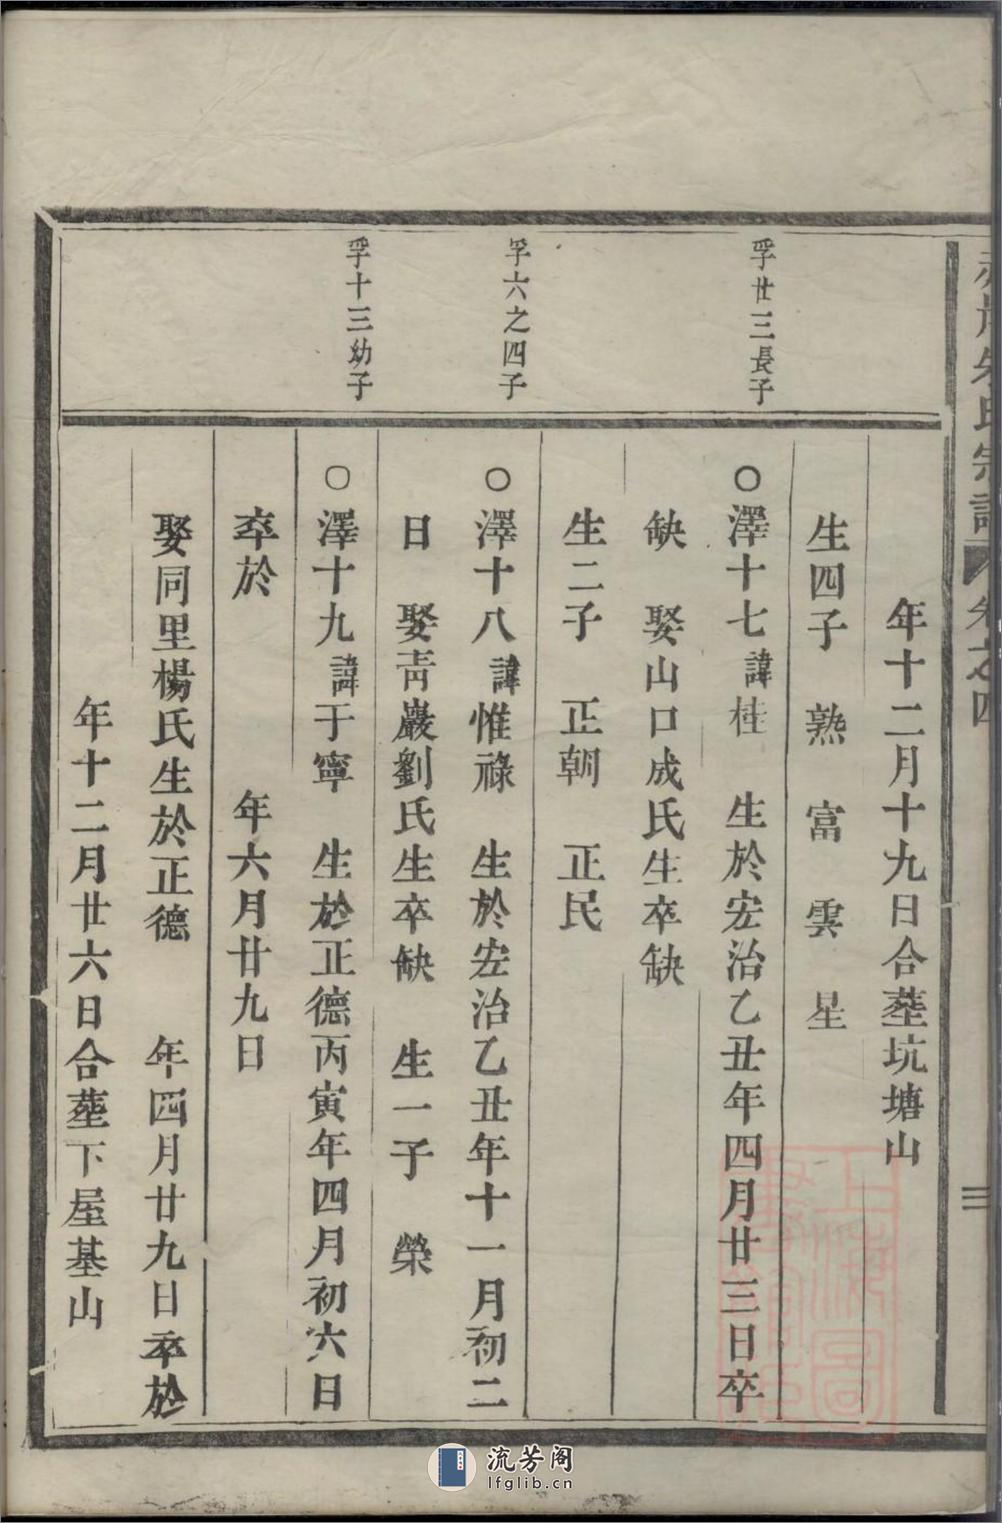 朱氏宗譜 卷之四 三
年十二月十九日合塟坑塘山
生四子 熟 富 雲 星
孚廿三長子
○澤十七諱桂 生於宏治乙丑年四月廿三日卒
缺 娶山口成氏生卒缺
生二子 正朝 正民
孚六之四子
○澤十八諱惟祿 生於宏治乙丑年十一月初二
日 娶青巖劉氏生卒缺 生一子 榮
孚十三幼子
○澤十九諱于寧 生於正德丙寅年四月初六日
卒於 年六月廿九日
娶同里楊氏生於正德 年四月廿九日卒於
年十二月廿六日合塟下屋基山
上海圖書館藏
流芳阁
lfglib.cn